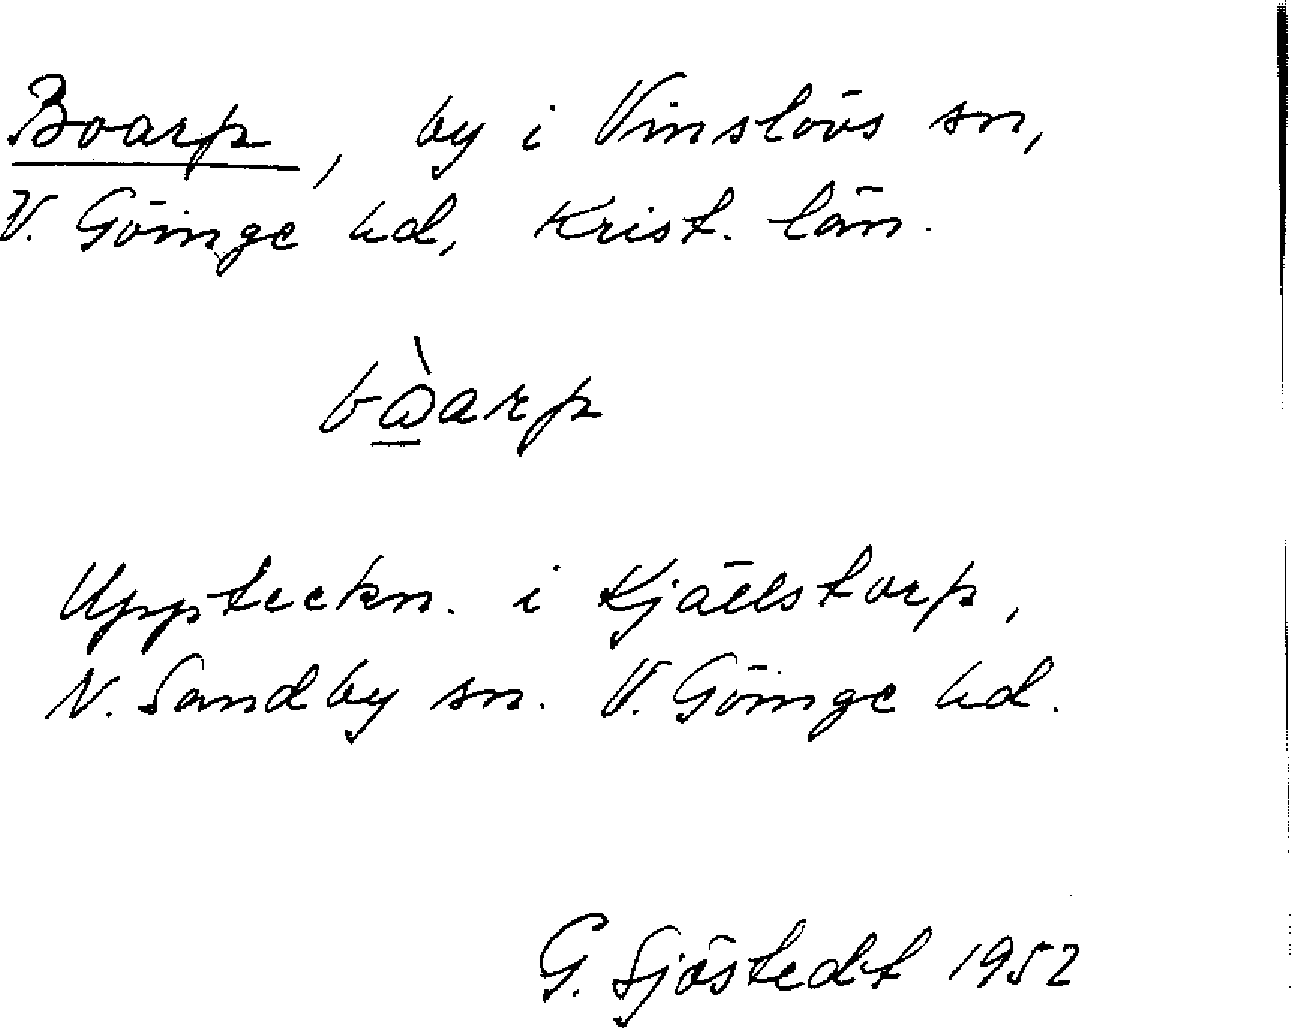 Boarp, by i Vinslövs sn,
V. Göinge hd, Krist. län.
bò̲arp
Uppteckn. i Kjällstorp,
N. Sandby sn. V. Göinge hd.
G. Sjöstedt 1952